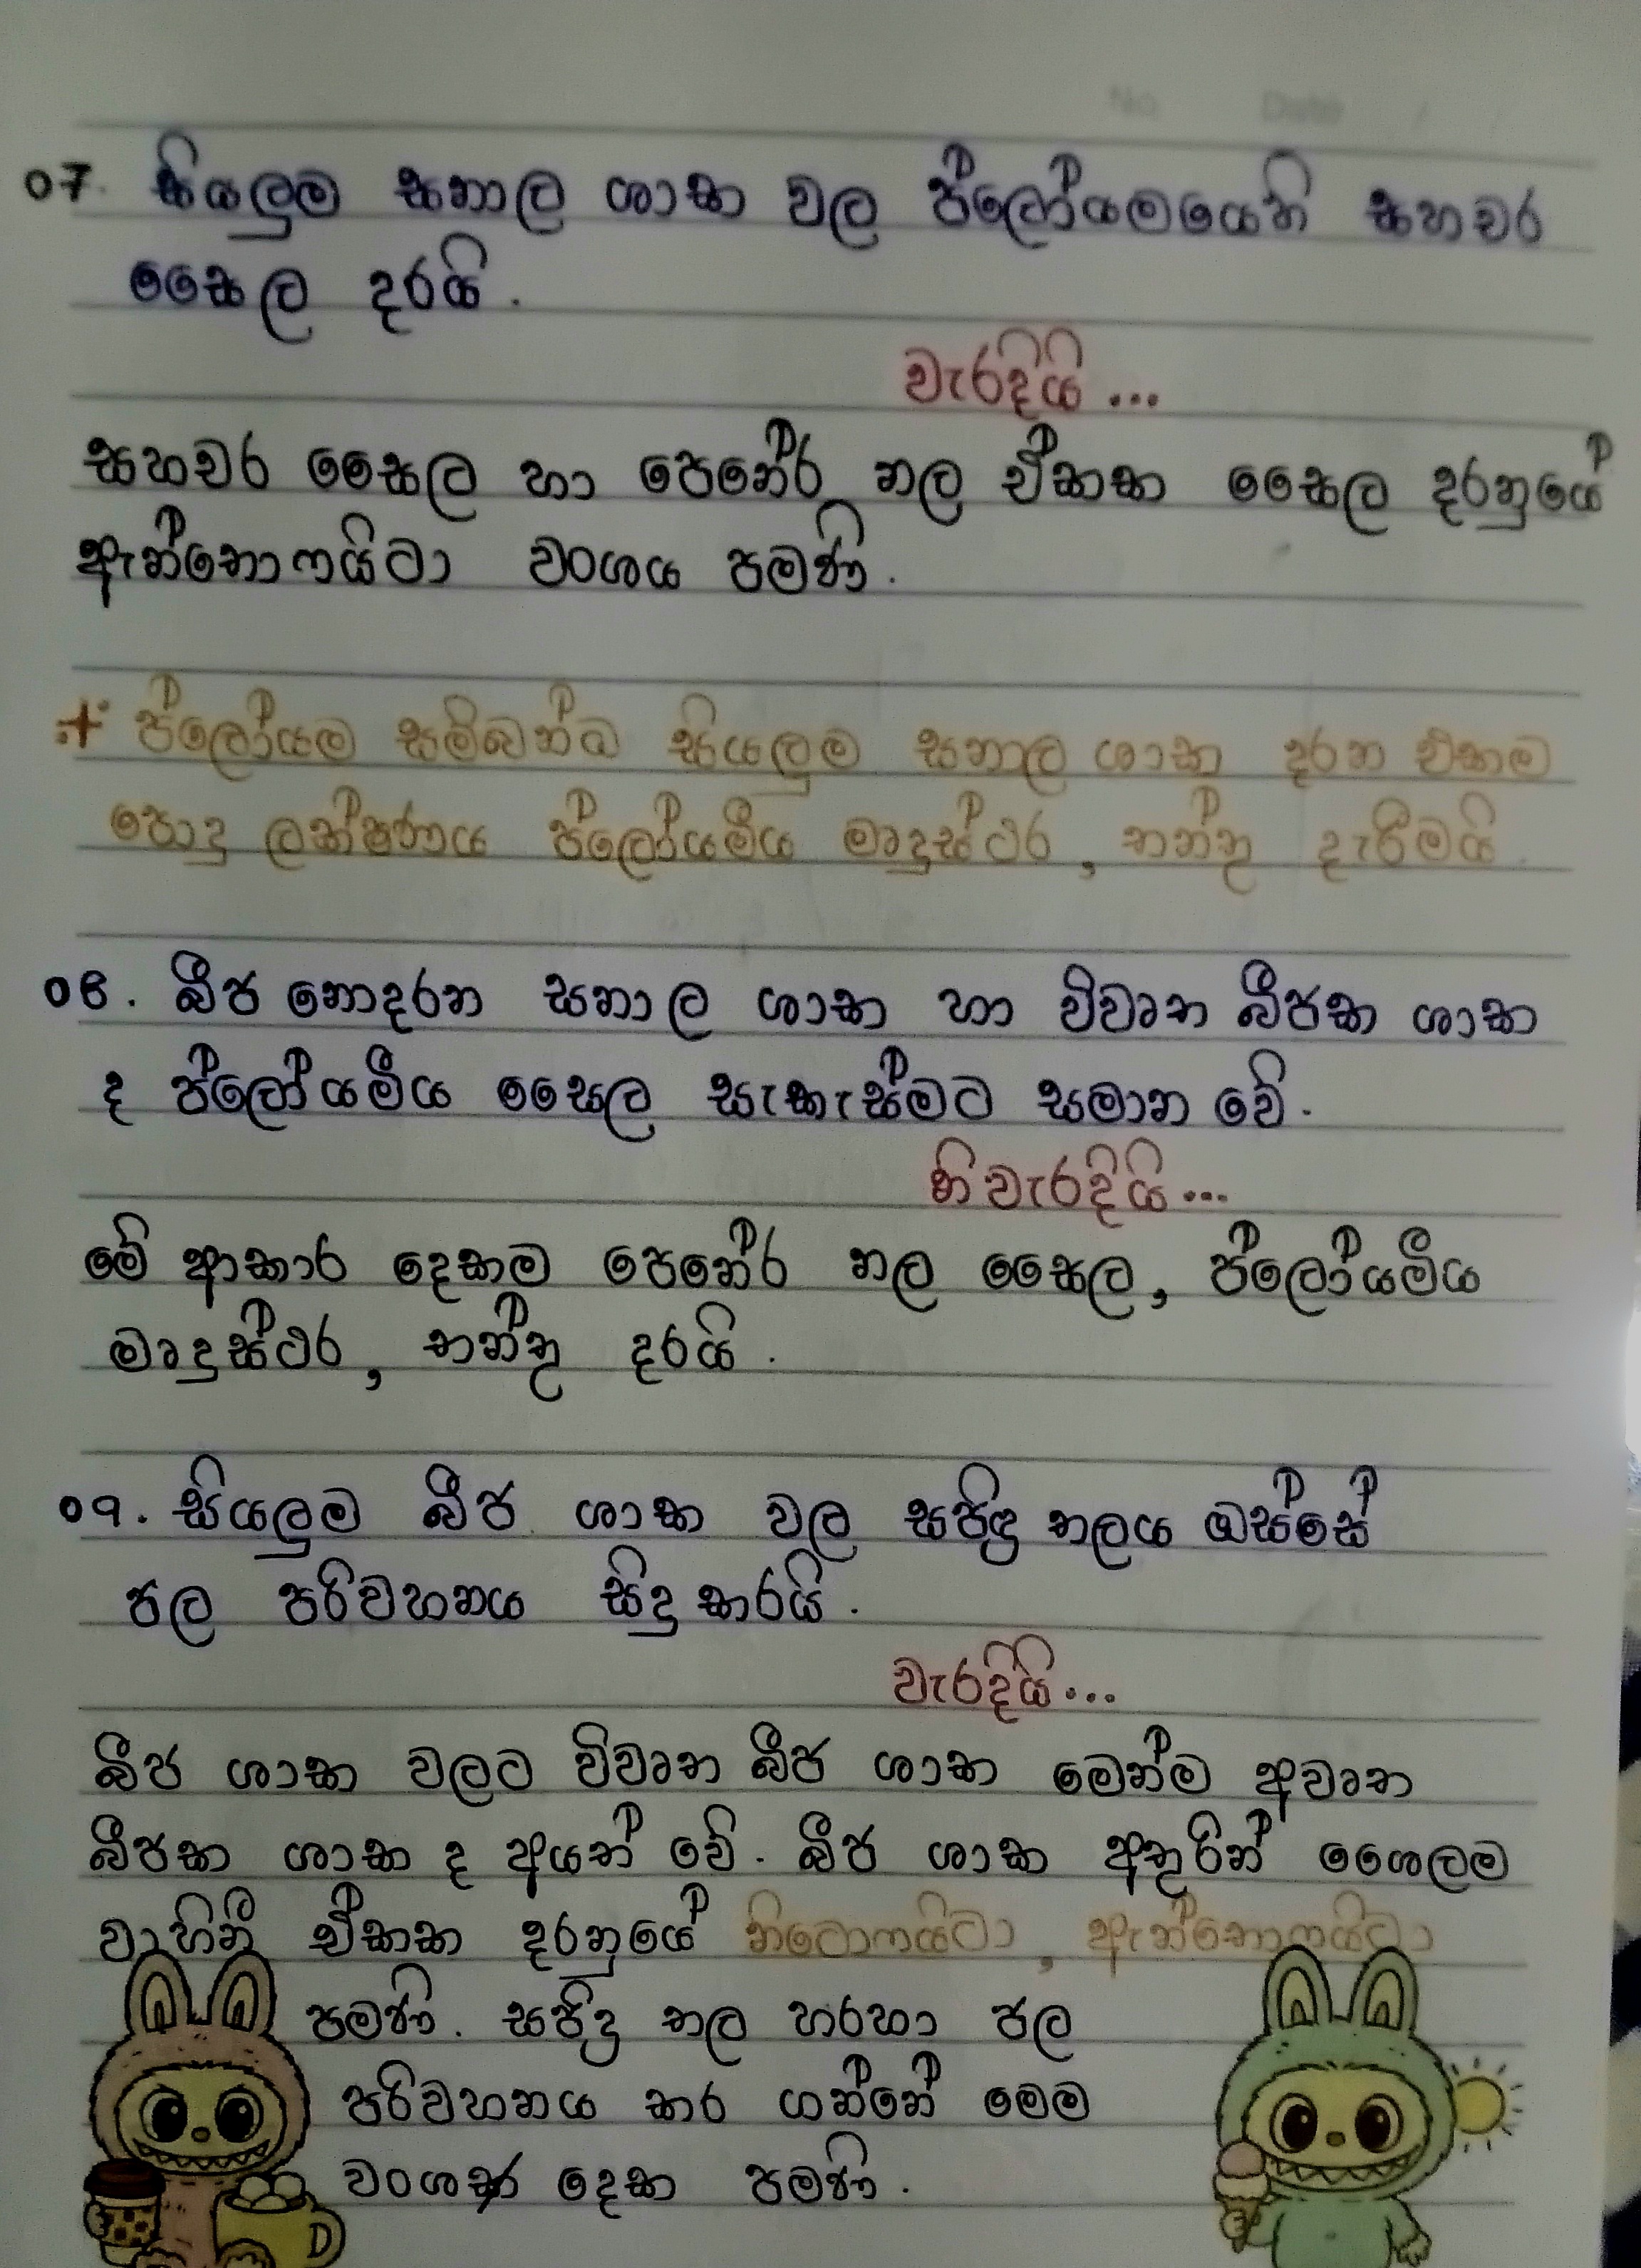 No Date / /
07. සියලුම සනාල ශාක වල ප්ලෝයමයෙහි සහචර
සෛල දරයි.
වැරදියි...
සහචර සෛල හා පෙනේර නල ඒකක සෛල දරනුයේ
ඇන්තොෆයිටා වංශය පමණි.
⁜ ප්ලෝයම සම්බන්ධ සියලුම සනාල ශාක දරන එකම
පොදු ලක්ෂණය ප්ලෝයමීය මෘදුස්ථර, තන්තු දැරීමයි.
08. බීජ නොදරන සනාල ශාක හා විවෘත බීජක ශාක
ද ප්ලෝයමීය සෛල සැකැස්මට සමාන වේ.
නිවැරදියි...
මේ ආකාර දෙකම පෙනේර නල සෛල, ප්ලෝයමීය
මෘදුස්ථර, තන්තු දරයි.
09. සියලුම බීජ ශාක වල සජිද්‍ර නලය ඔස්සේ
ජල පරිවහනය සිදු කරයි.
වැරදියි...
බීජ ශාක වලට විවෘත බීජ ශාක මෙන්ම අවෘත
බීජක ශාක ද අයත් වේ. බීජ ශාක අතුරින් ශෛලම
වාහිනී ඒකක දරනුයේ නිටොෆයිටා, ඇන්තොෆයිටා
පමණි. සජිද්‍ර නල හරහා ජල
පරිවහනය කර ගන්නේ මෙම
වංශ දෙක පමණි.